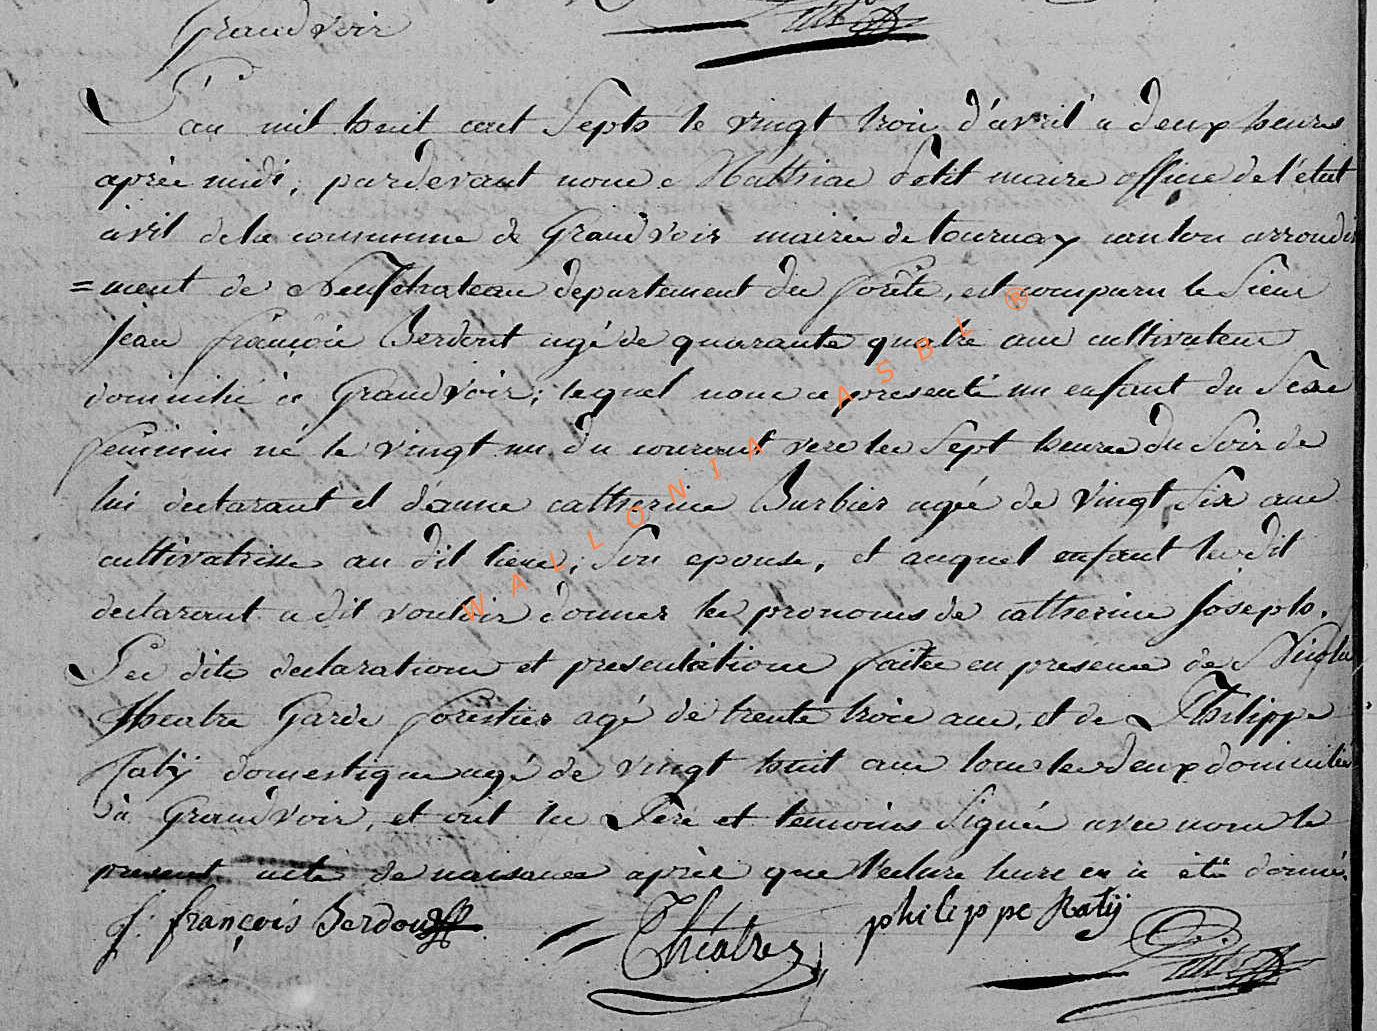 Grandvoir
L'an mil huit cent Septs le vingt trois d'avril a deux heures
après midi, pardevant nous Matthias Petit maire officie de l'état
civil de la commune de Grandvoir mairie de tournay canton arrondis
=ment de Neufchateau departement du forêts, est comparu le Sieur
jean françois Berdout agé de quarante quatre ans cultivateur
domicilié à Grandvoir; lequel nous a presenté un enfant du Sexe
feminin né le vingt un du courant vers les Sept heures du Soir de
lui declarant et d'anne catherine Burbier agée de vingt Six ans
cultivatrisse au dit lieu, Son epouse, et auquel enfant le dit
declarant a dit vouloir donner les pronoms de catherine Joseph.
Les dite declaration et presentation faite en presence de Nicolas
theatre Garde forestier agé de trente trois ans, et de Philippe
Raty domestique agé de vingt huit ans tous les deux domiciliés
à Grandvoir, et ont les Père et temoins Signés avec nous le
present acte de naissance après que lecture leure en à été donné
J: françois Berdoux
Théatre
philippe Raty
WALLONIA ASBL ®